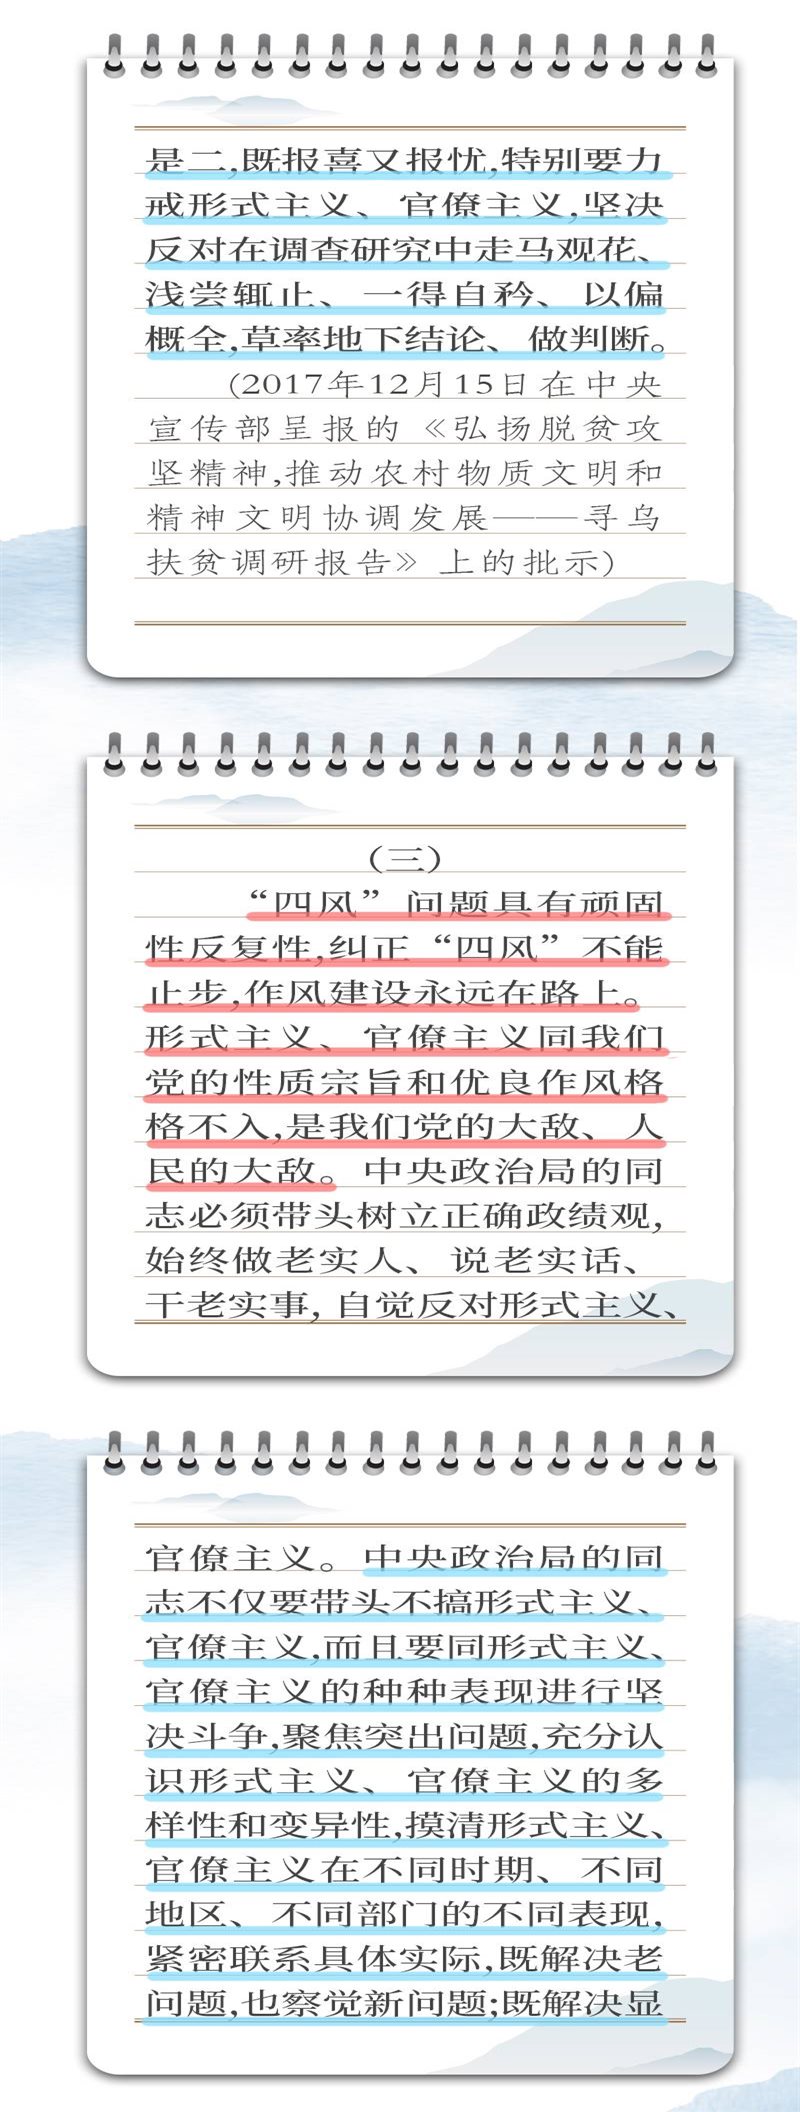 是二,既报喜又报忧,特别要力
戒形式主义、官僚主义,坚决
反对在调查研究中走马观花、
浅尝辄止、一得自矜、以偏
概全,草率地下结论、做判断。
(2017年12月15日在中央
宣传部呈报的《弘扬脱贫攻
坚精神,推动农村物质文明和
精神文明协调发展——寻乌
扶贫调研报告》上的批示)
(三)
“四风”问题具有顽固
性反复性,纠正“四风”不能
止步,作风建设永远在路上。
形式主义、官僚主义同我们
党的性质宗旨和优良作风格
格不入,是我们党的大敌、人
民的大敌。中央政治局的同
志必须带头树立正确政绩观,
始终做老实人、说老实话、
干老实事,自觉反对形式主义、
官僚主义。中央政治局的同
志不仅要带头不搞形式主义、
官僚主义,而且要同形式主义、
官僚主义的种种表现进行坚
决斗争,聚焦突出问题,充分认
识形式主义、官僚主义的多
样性和变异性,摸清形式主义、
官僚主义在不同时期、不同
地区、不同部门的不同表现,
紧密联系具体实际,既解决老
问题,也察觉新问题;既解决显